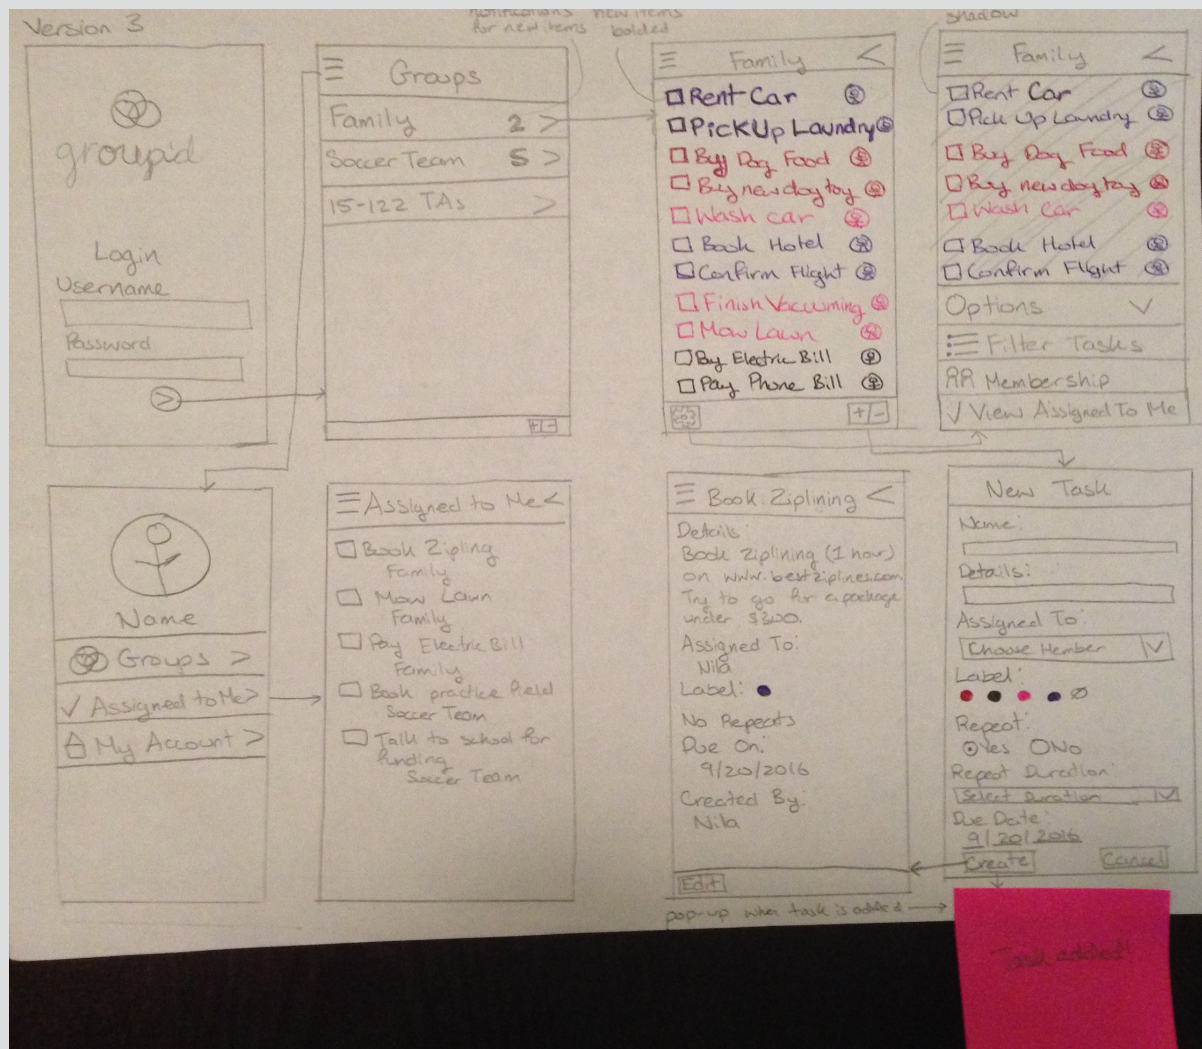 Version 3
notifications
for new items
new items
bolded
shadow
groupid
Login
Username
Password
>
Groups
Family 2 >
Soccer Team 5 >
15-122 TAs >
+ -
Family <
Rent Car
Pick Up Laundry
Buy Dog Food
Buy new dog toy
Wash car
Book Hotel
Confirm Flight
Finish Vacuuming
Mow Lawn
By Electric Bill
Pay Phone Bill
+ -
Family <
Rent Car
Pick Up Laundry
Buy Dog Food
Buy new dog toy
Wash Car
Book Hotel
Confirm Flight
Options
Filter Tasks
Membership
View Assigned To Me
Name
Groups >
Assigned to Me >
My Account >
Assigned to Me <
Book Zipling
Family
Mow Lawn
Family
Pay Electric Bill
Family
Book practice field
Soccer Team
Talk to school for
funding
Soccer Team
Book Ziplining <
Details:
Book Ziplining (1 hour)
on www.bestziplines.com.
Try to go for a package
under $300.
Assigned To:
Nila
Label:
No Repeats
Due On:
9/20/2016
Created By:
Nila
Edit
New Task
Name:
Details:
Assigned To:
Choose Member
Label:
Repeat:
Yes No
Repeat Duration:
Select Duration
Due Date:
9/20/2016
Create Cancel
pop-up when task is added
Task added!